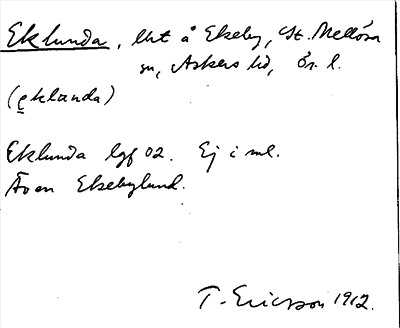 Eklunda, lht å Ekeby, St. Mellösa
sn, Askers hd, Ör. l.
(ęklunda)
Eklunda lgf 02. Ej i ml.
Även Ekebylund.
T. Ericsson 1912.